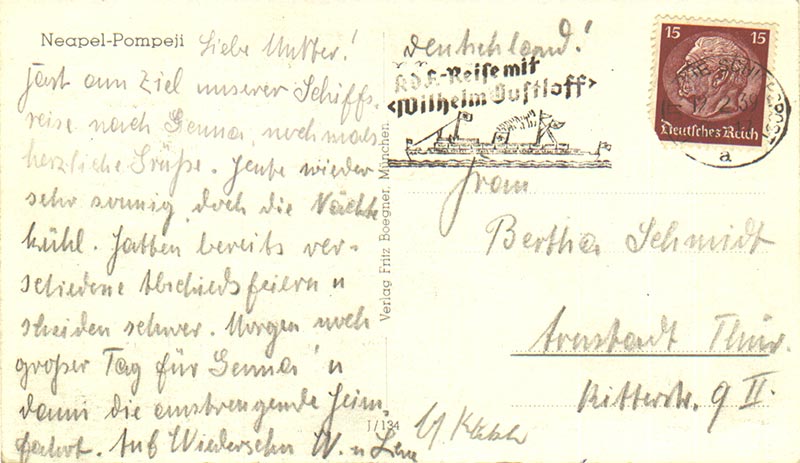 Neapel-Pompeji Liebe Mutter!
Fast am Ziel unserer Schiffs-
reise nach Genua, nochmals
herzliche Grüße. Heute wieder
sehr sonnig, doch die Nächte
kühl. Hatten bereits ver-
schiedene Abschiedsfeiern u
scheiden schwer. Morgen noch
großer Tag für Genua u
dann die anstrengende Heim-
fahrt. Auf Wiedersehn W. u Lina
Verlag Fritz Boegner, München.
J/134
Deutschland!
KdF.-Reise mit
<Wilhelm Gustloff>
15 15
Deutsches Reich
a
Frau
Bertha Schmidt
Arnstadt Thür.
Ritterstr. 9 II.